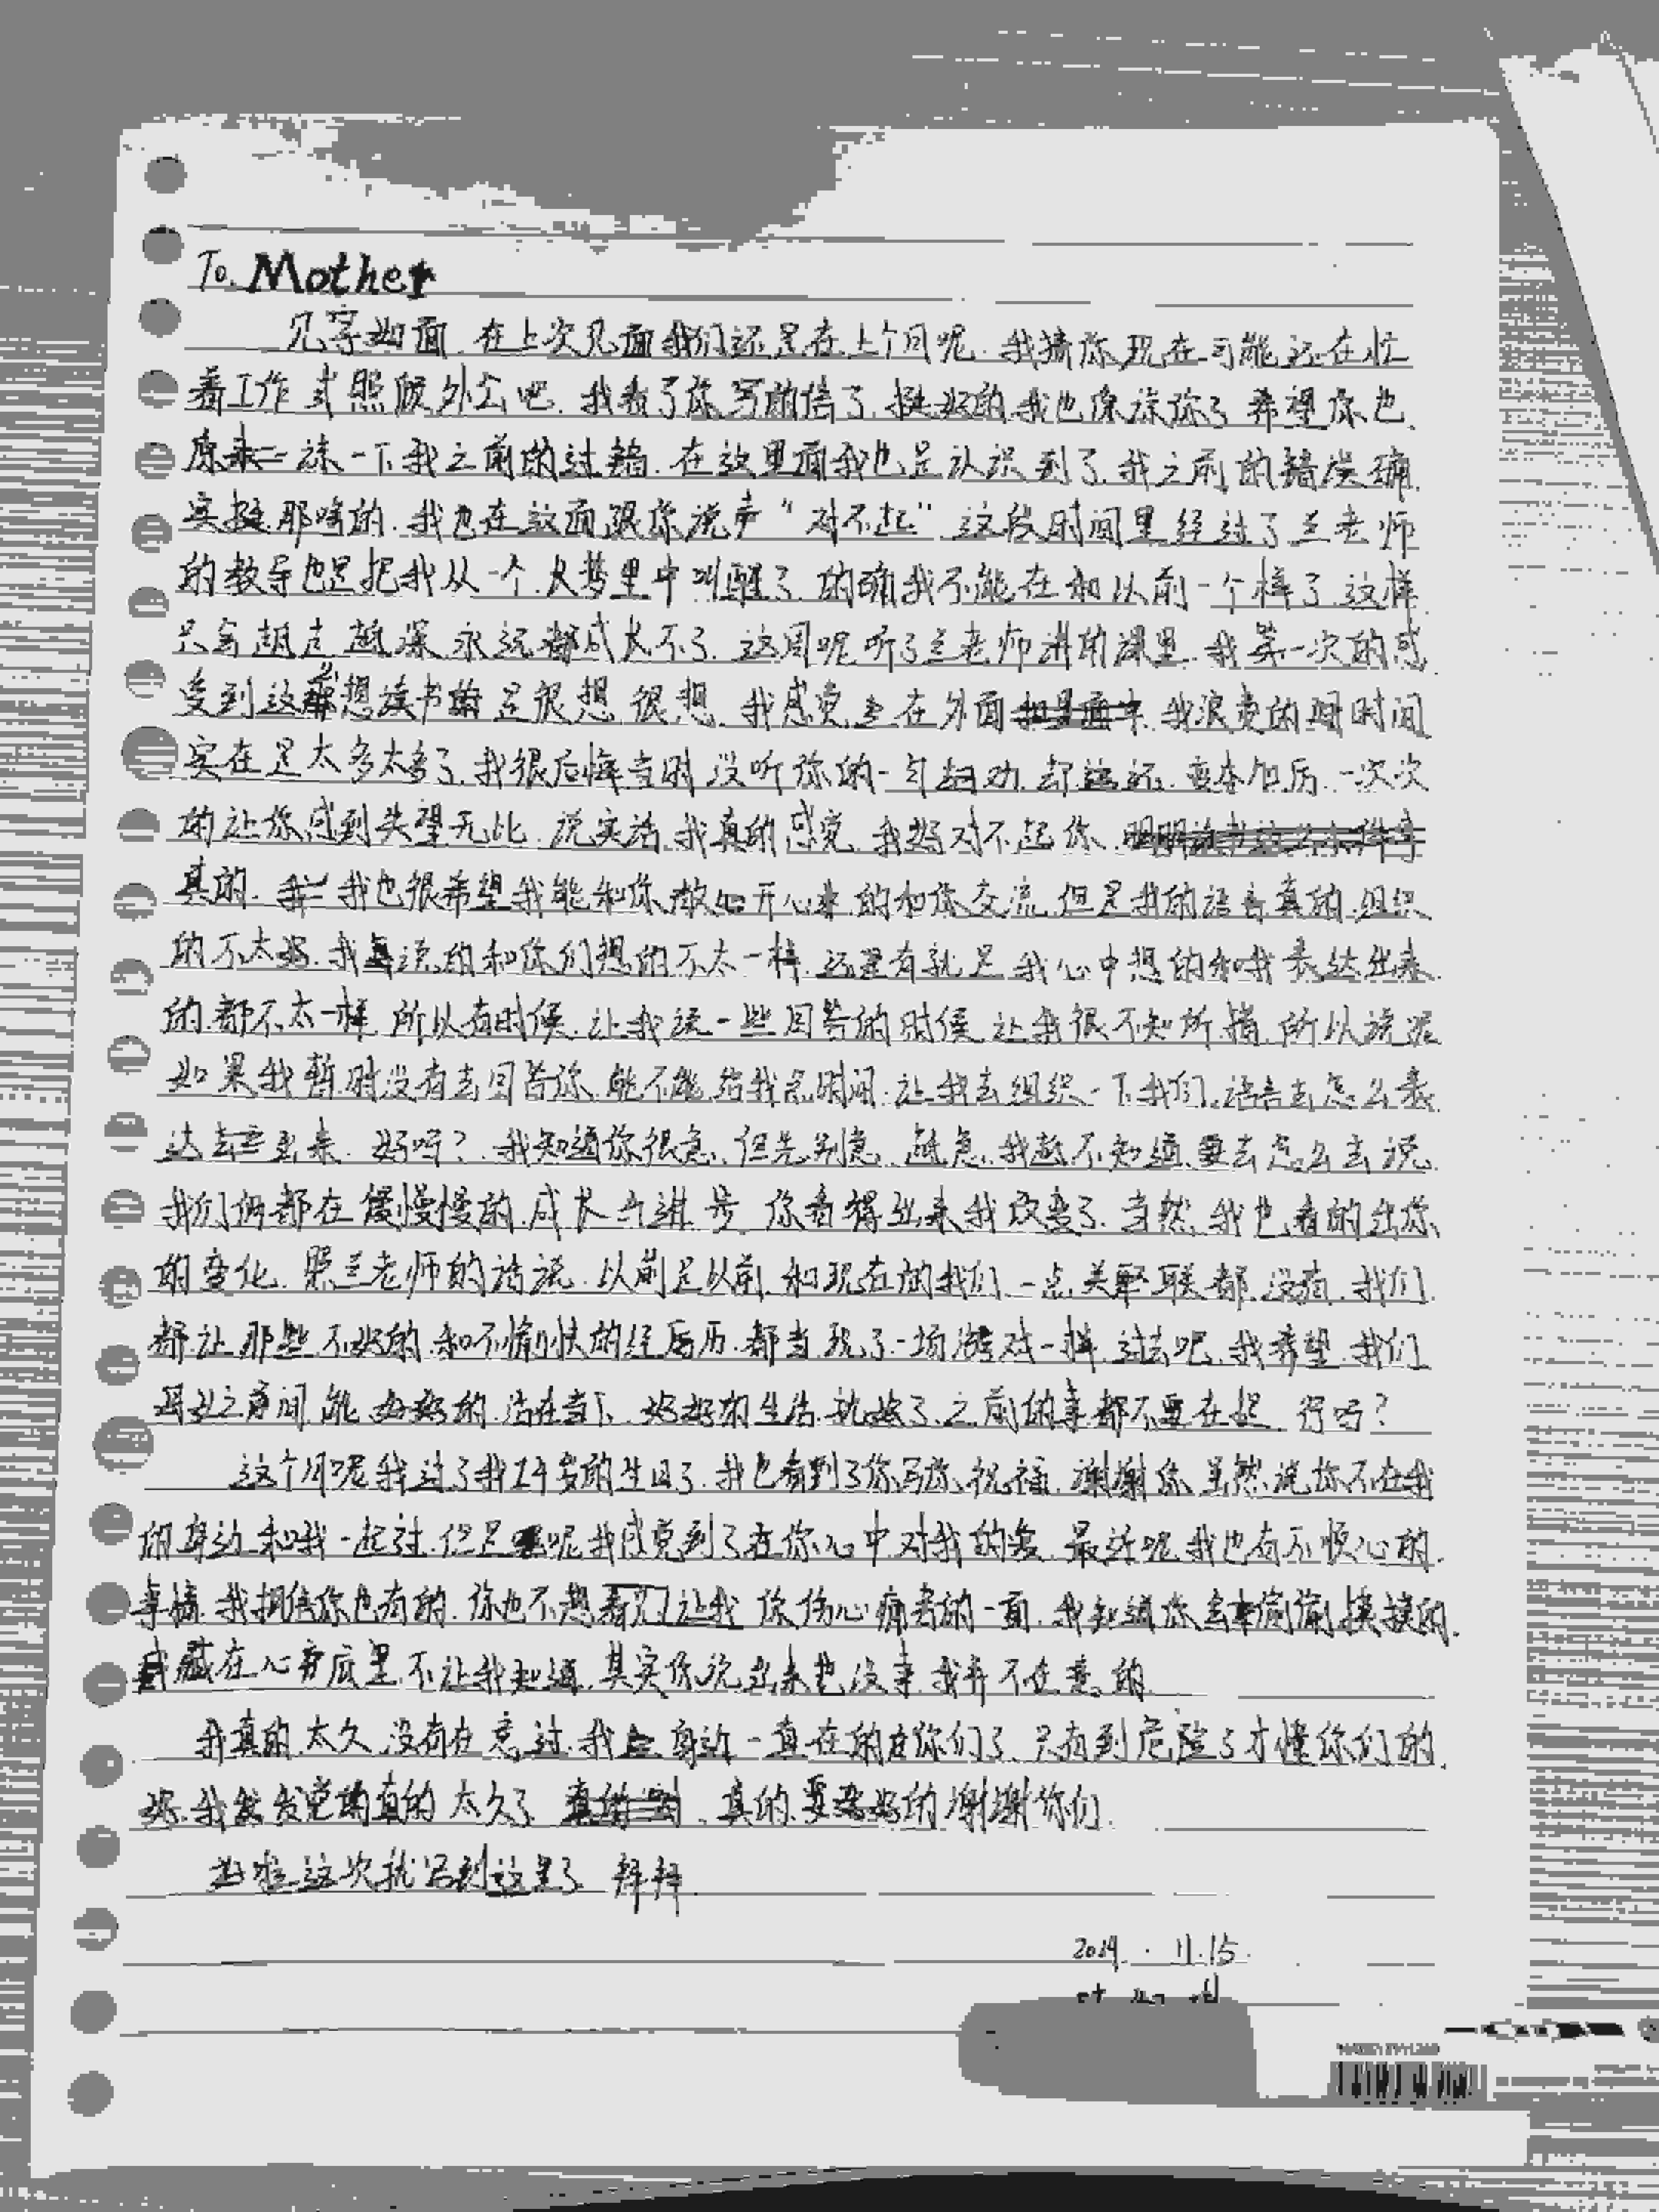 To. Mother
见字如面.在上次见面我们还是在上个月呢.我猜你现在可能还在忙
着工作或照顾外公吧.我看了你写的信了.挺好的.我也原谅你了.希望你也
原谅一下我之前的过错.在这里面我也是认识到了.我之前的错误确
实挺那啥的.我也在这面跟你说声“对不起”.这段时间里经过了兰老师
的教导也是把我从一个大梦里中叫醒了.的确我不能在和以前一个样了.这样
只会越走越深.永远都成长不了.这周呢听了兰老师讲的课里.我第一次的感
受到这想读书是很想很想.我感觉在外面.我浪费的时间
实在是太多太多了.我很后悔当时没听你的一句劝.却还.变本加厉.一次次
的让你感到失望无比.说实话.我真的感觉.我好对不起你.
真的.我也很希望我能和你敞开心的和你交流.但是我的语言真的.组织
的不太好.我说的和你们想的不太一样.还有就是我心中想的和我表达出来
的都不太一样.所以有时候.让我说一些回答的时候.让我很不知所措.所以说呢
如果我暂时没有去回答你.能不能给我点时间.让我去组织一下我们.语言去怎么表
达出来.好吗?.我知道你很急.但先别急.越急.我越不知道要去怎么去说.
我们俩都在慢慢的成长与进步.你看得出来我改变了.当然.我也看的出你
的变化.照兰老师的话说.以前是以前.和现在的我们.一点关联都没有.我们
都让那些不好的.和不愉快的经历.都当玩了一场游戏一样.过去吧.我希望.我们
母女之间.能好好的.活在当下.好好的生活.就好了.之前的事都不要在提.行吗?
这个月呢我过了我14岁的生日了.我也看到了你写你祝福.谢谢你.虽然说你不在我
的身边和我一起过.但是呢我感觉到了在你心中对我的爱.最近呢我也有不顺心的.
事情.我相信你也有的.你也不想让我你伤心痛苦的一面.我知道你会偷偷摸摸的.
藏在心底里.不让我知道.其实你说出来也没事.我并不在意的.
我真的太久没有在意过.我身边一直在的你们了.只有到危险了才懂你们的
好.我发觉的真的太久了.真的.要好好的谢谢你们.
这次就写到这里了.拜拜.
11.15